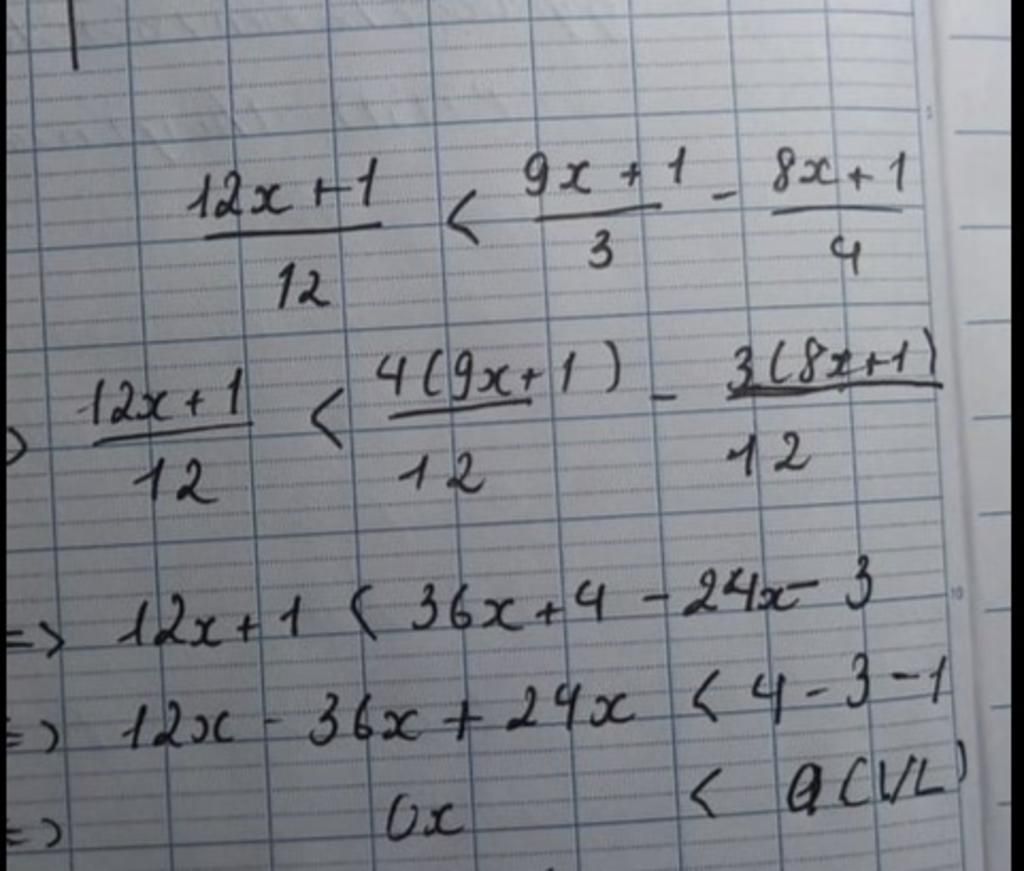 12x + 1 / 12 < 9x + 1 / 3 - 8x + 1 / 4
12x + 1 / 12 < 4(9x + 1) / 12 - 3(8x + 1) / 12
=> 12x + 1 < 36x + 4 - 24x - 3
=> 12x - 36x + 24x < 4 - 3 - 1
=> 0x < 0 (VL)